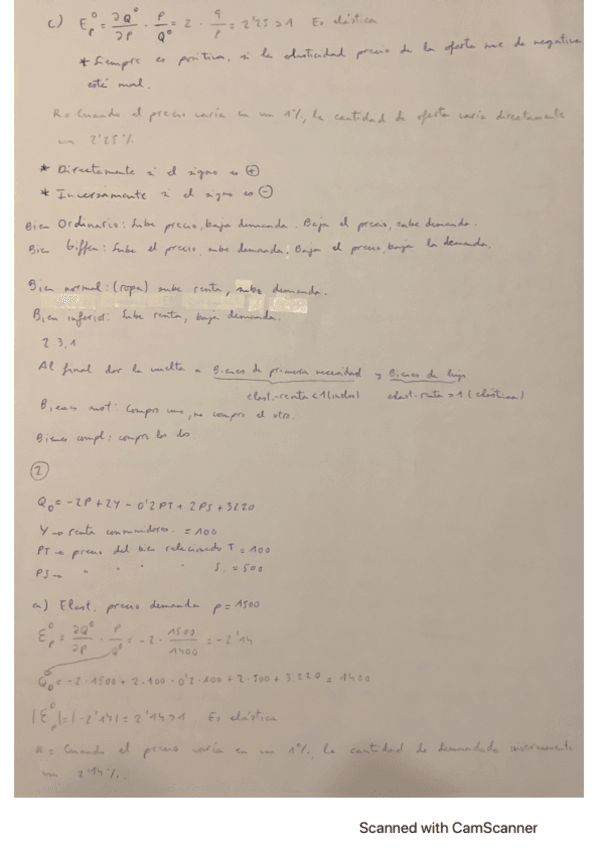 c) E_p^o = ∂Q^o/∂P · P/Q^o = 2 · 9/8 = 2'25 > 1 Es elástica
* Siempre es positiva, si la elasticidad precio de la oferta me da negativa
está mal.
R = Cuando el precio varía en un 1%, la cantidad de oferta varía directamente
un 2'25%
* Directamente si el signo es ⊕
* Inversamente si el signo es ⊖
Bien Ordinario: Sube precio, baja demanda. Baja el precio, sube demanda.
Bien Giffen: Sube el precio, sube demanda, Baja el precio, baja la demanda.
Bien normal: (ropa) sube renta, sube demanda.
Bien inferior: Sube renta, baja demanda.
2.3.1
Al final dar la vuelta a Bienes de primera necesidad y Bienes de lujo
elast.-renta < 1 elast. renta > 1 (elástica)
Bienes sust: Compro uno, no compro el otro.
Bienes compl: compro los dos
②
Q_D = -2P + 2Y - 0'2PT + 2PS + 3220
Y → renta consumidores. = 100
PT → precio del bien relacionado T = 100
PS → " " " " S. = 500
a) Elast. precio demanda p = 1500
E_p^D = ∂Q^D/∂P · P/Q^D = -2 · 1500/1400 = -2'14
Q_D = -2·1500 + 2·100 - 0'2·100 + 2·500 + 3220 = 1400
|E_p^D| = |-2'14| = 2'14 > 1 Es elástica
R = Cuando el precio varía en un 1%, la cantidad de demandada inversamente
un 2'14%.
Scanned with CamScanner